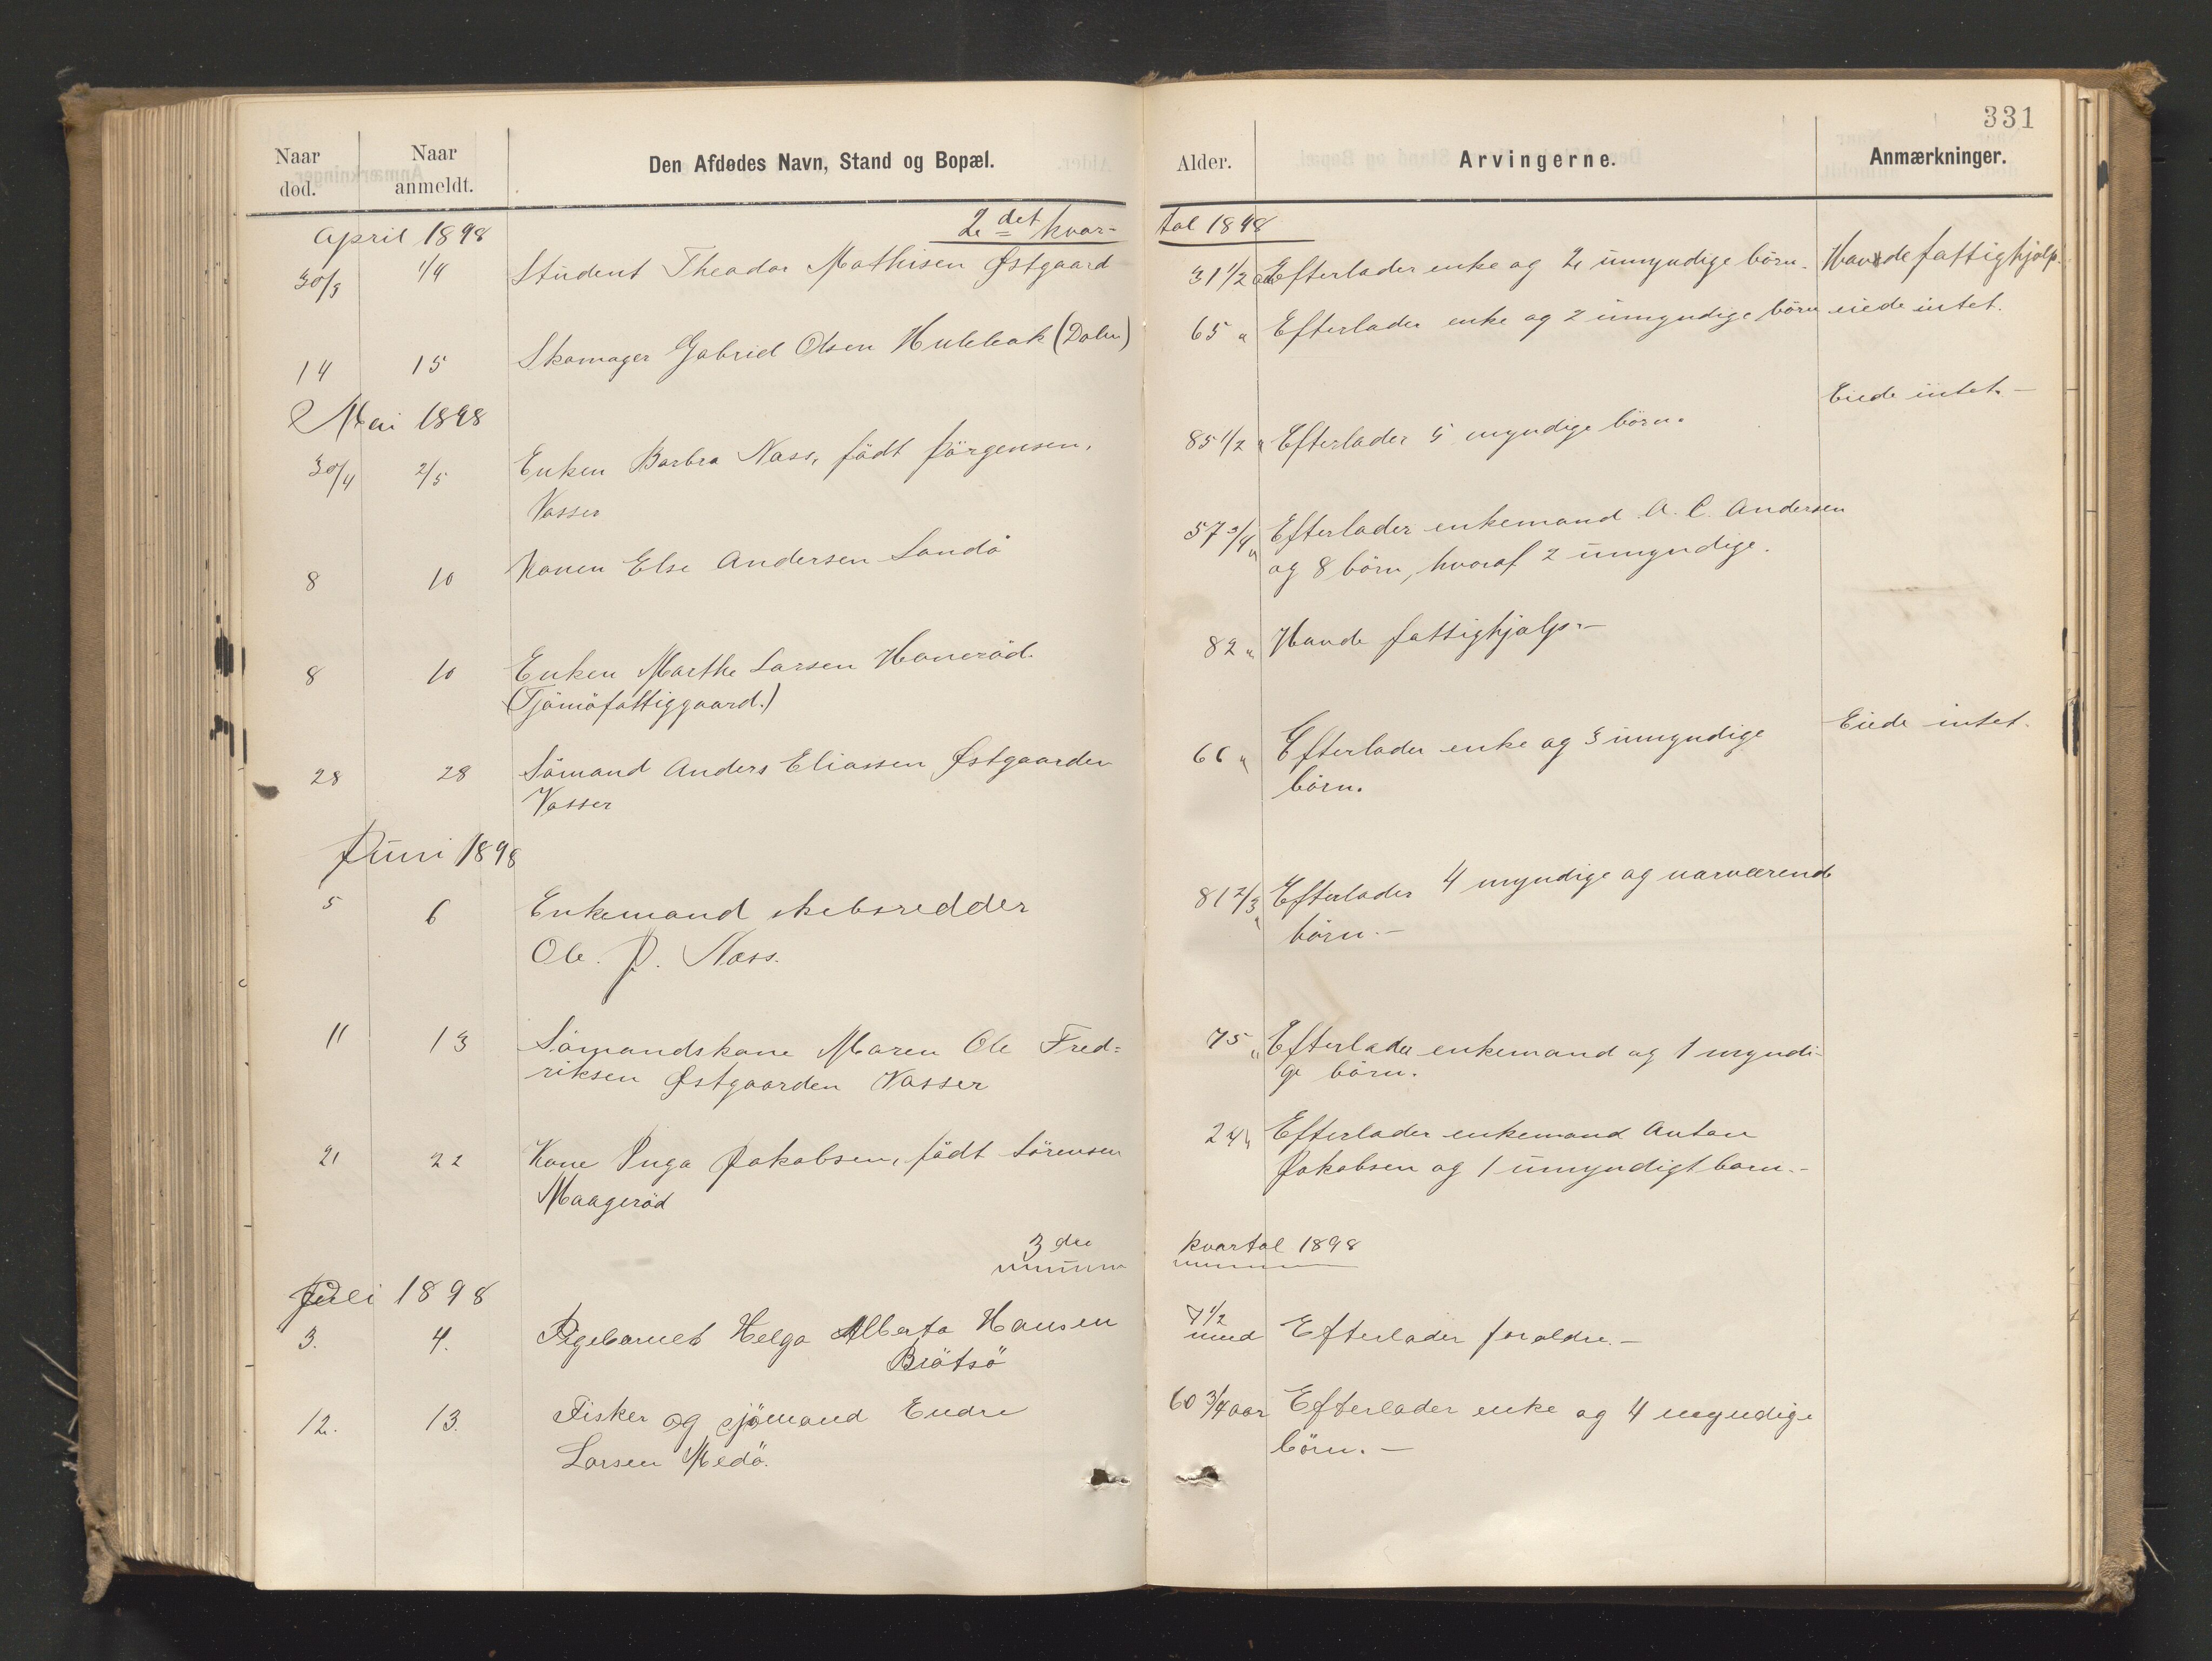 331
Naar død.
Naar anmeldt.
Den Afdødes Navn, Stand og Bopæl.
Alder.
Arvingerne.
Anmærkninger.
2det kvar-
tal 1898
April 1898
30/3 1/4 Student Theodor Mathisen Østgaard 31 1/2 aar Efterlader enke og 2 umyndige börn. Havde fattighjælp.
14 15 Skomager Gabriel Olsen Hulebak 65 " Efterlader enke og 2 umyndige börn eiede intet.
Mai 1898
30/4 2/5 Enken Barbra Næss, födt Jörgensen, 85 1/2 " Efterlader 5 myndige börn. Eiede intet. —
Vasser
8 10 Konen Else Andersen Sandö 57 3/4 " Efterlader enkemand A. C. Andersen
og 8 börn, hvoraf 2 umyndige.
8 10 Enken Marthe Larsen Haneröd. 82 " Havde fattighjælp. —
(Tjömöfattiggaard.)
28 28 Sömand Anders Eliassen Østgaarden 66 " Efterlader enke og 3 umyndige Eiede intet.
Vasser börn.
Juni 1898
5 6 Enkemand skibsredder 81 2/3 " Efterlader 4 myndige og nærværende
Ole. J. Næss. börn. —
11 13 Sömandskone Maren Ole Fred= 75 " Efterlader enkemand og 1 myndi-
riksen Østgaarden Vasser ge börn.
21 22 Kone Inga Jakobsen, födt Sörensen 24 " Efterlader enkemand Anton
Maageröd Jakobsen og 1 umyndigt barn. -
3die
kvartal 1898
Juli 1898
3. 4. Pigebarnet Helga Alberta Hansen 7 1/2 mnd Efterlader forældre. —
Brötsö
12. 13. Fisker og sjömand Endre 60 3/4 aar Efterlader enke og 4 myndige
Larsen Medö. börn. —